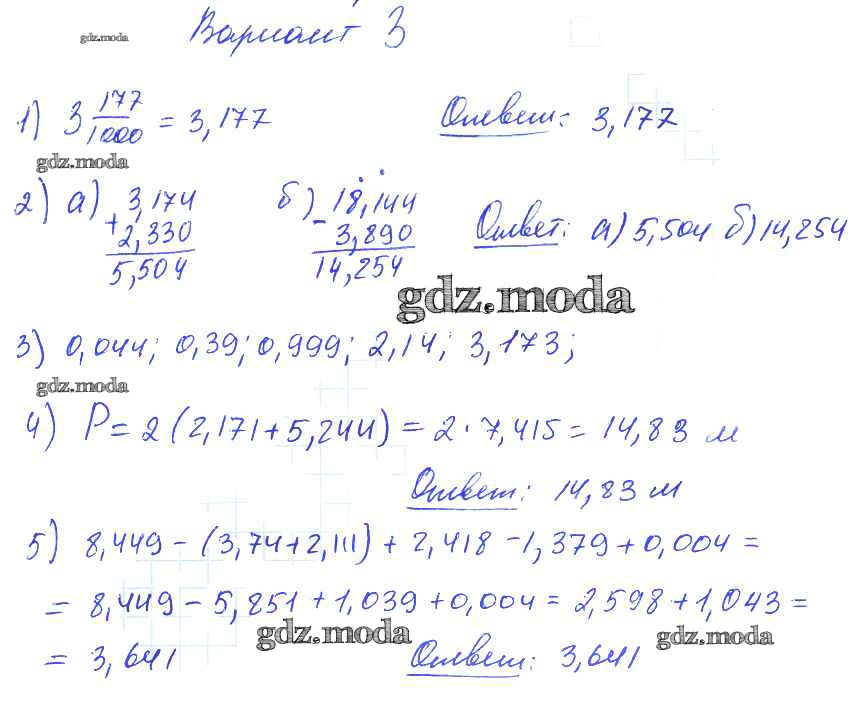 gdz.moda Вариант 3
1) 3 177/1000 = 3,177 Ответ: 3,177
gdz.moda
2) а) + 3,174 б) - 18,144
2,330 3,890 Ответ: а) 5,504 б) 14,254
5,504 14,254
gdz.moda
3) 0,044; 0,39; 0,999; 2,14; 3,173;
gdz.moda
4) P = 2 (2,171 + 5,244) = 2 · 7,415 = 14,83 м
Ответ: 14,83 м
5) 8,449 - (3,74 + 2,111) + 2,418 - 1,379 + 0,004 =
= 8,449 - 5,851 + 1,039 + 0,004 = 2,598 + 1,043 =
gdz.moda gdz.moda
= 3,641 Ответ: 3,641